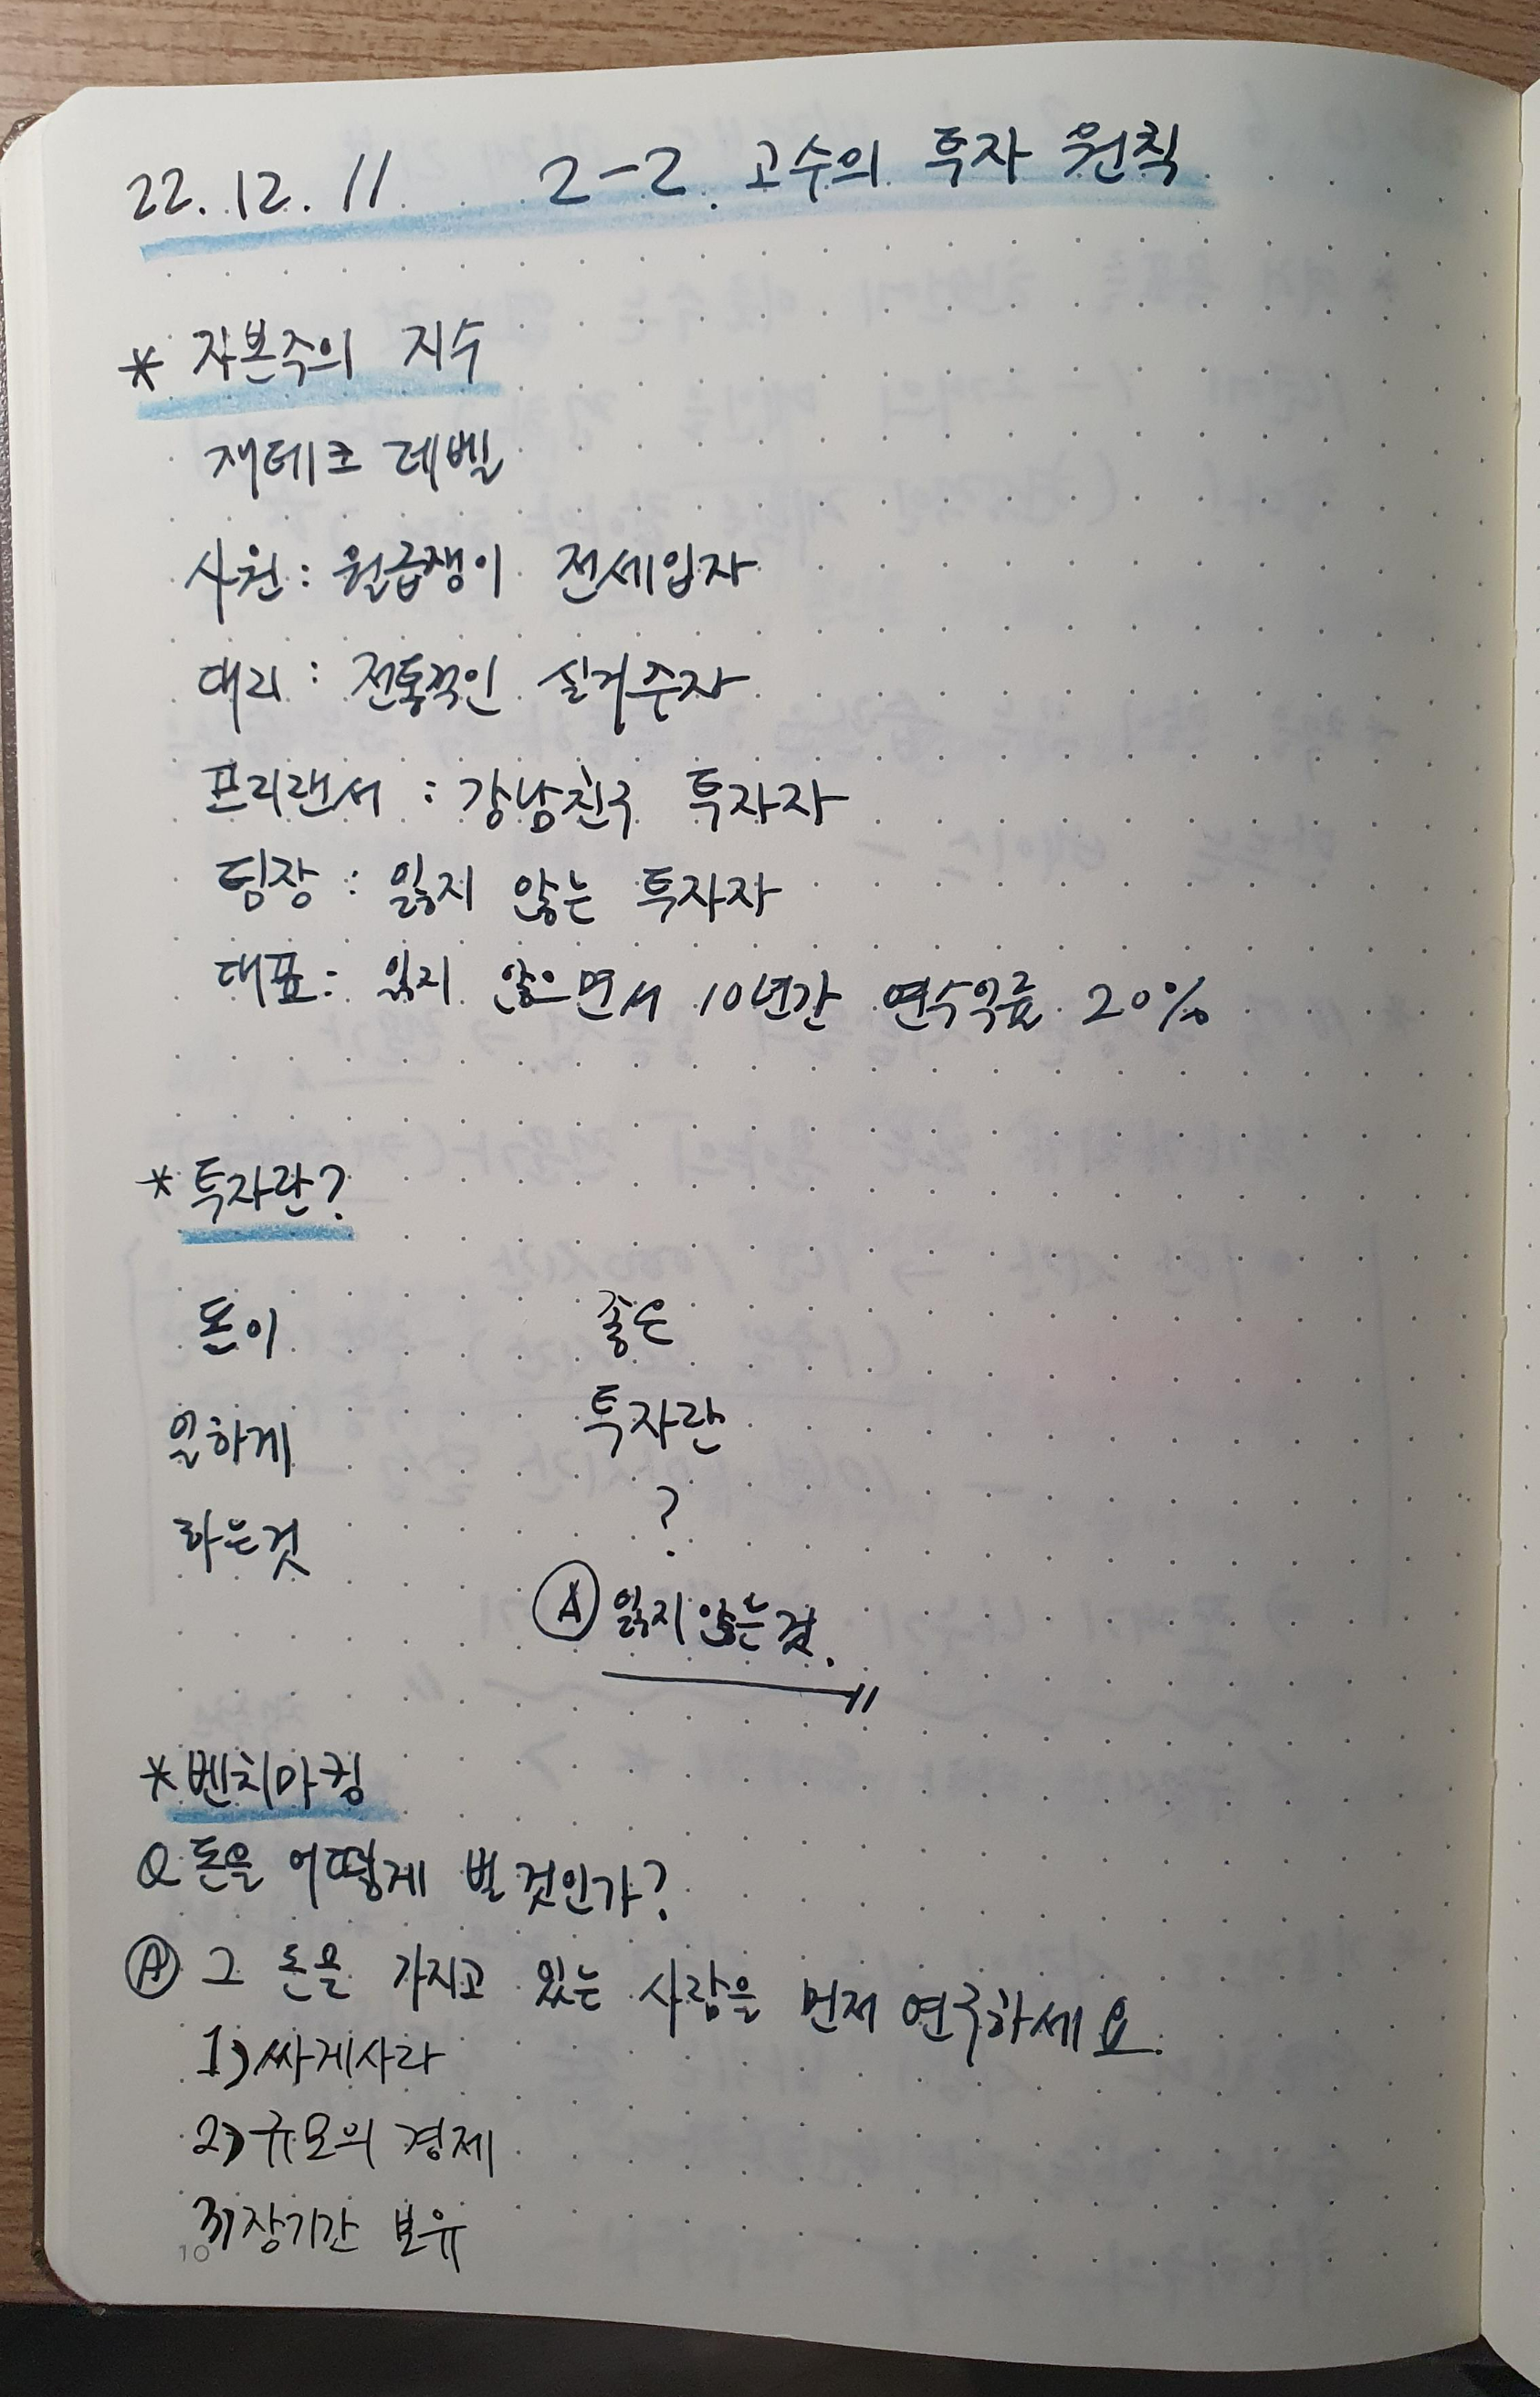 22.12.11 2-2. 고수의 투자 원칙
* 자본주의 지수
재테크 레벨
사원 : 월급쟁이 전세입자
대리 : 전통적인 실거주자
프리랜서 : 강남친구 투자자
팀장 : 잃지 않는 투자자
대표 : 잃지 않으면서 10년간 연수익률 20%
* 투자란?
돈이
일하게
하는것
좋은
투자란
?
Ⓐ 잃지 않는 것.
* 벤치마킹
Q 돈을 어떻게 벌 것인가?
Ⓐ 그 돈을 가지고 있는 사람을 먼저 연구하세요.
1) 싸게사라
2) 규모의 경제
3) 장기간 보유
10